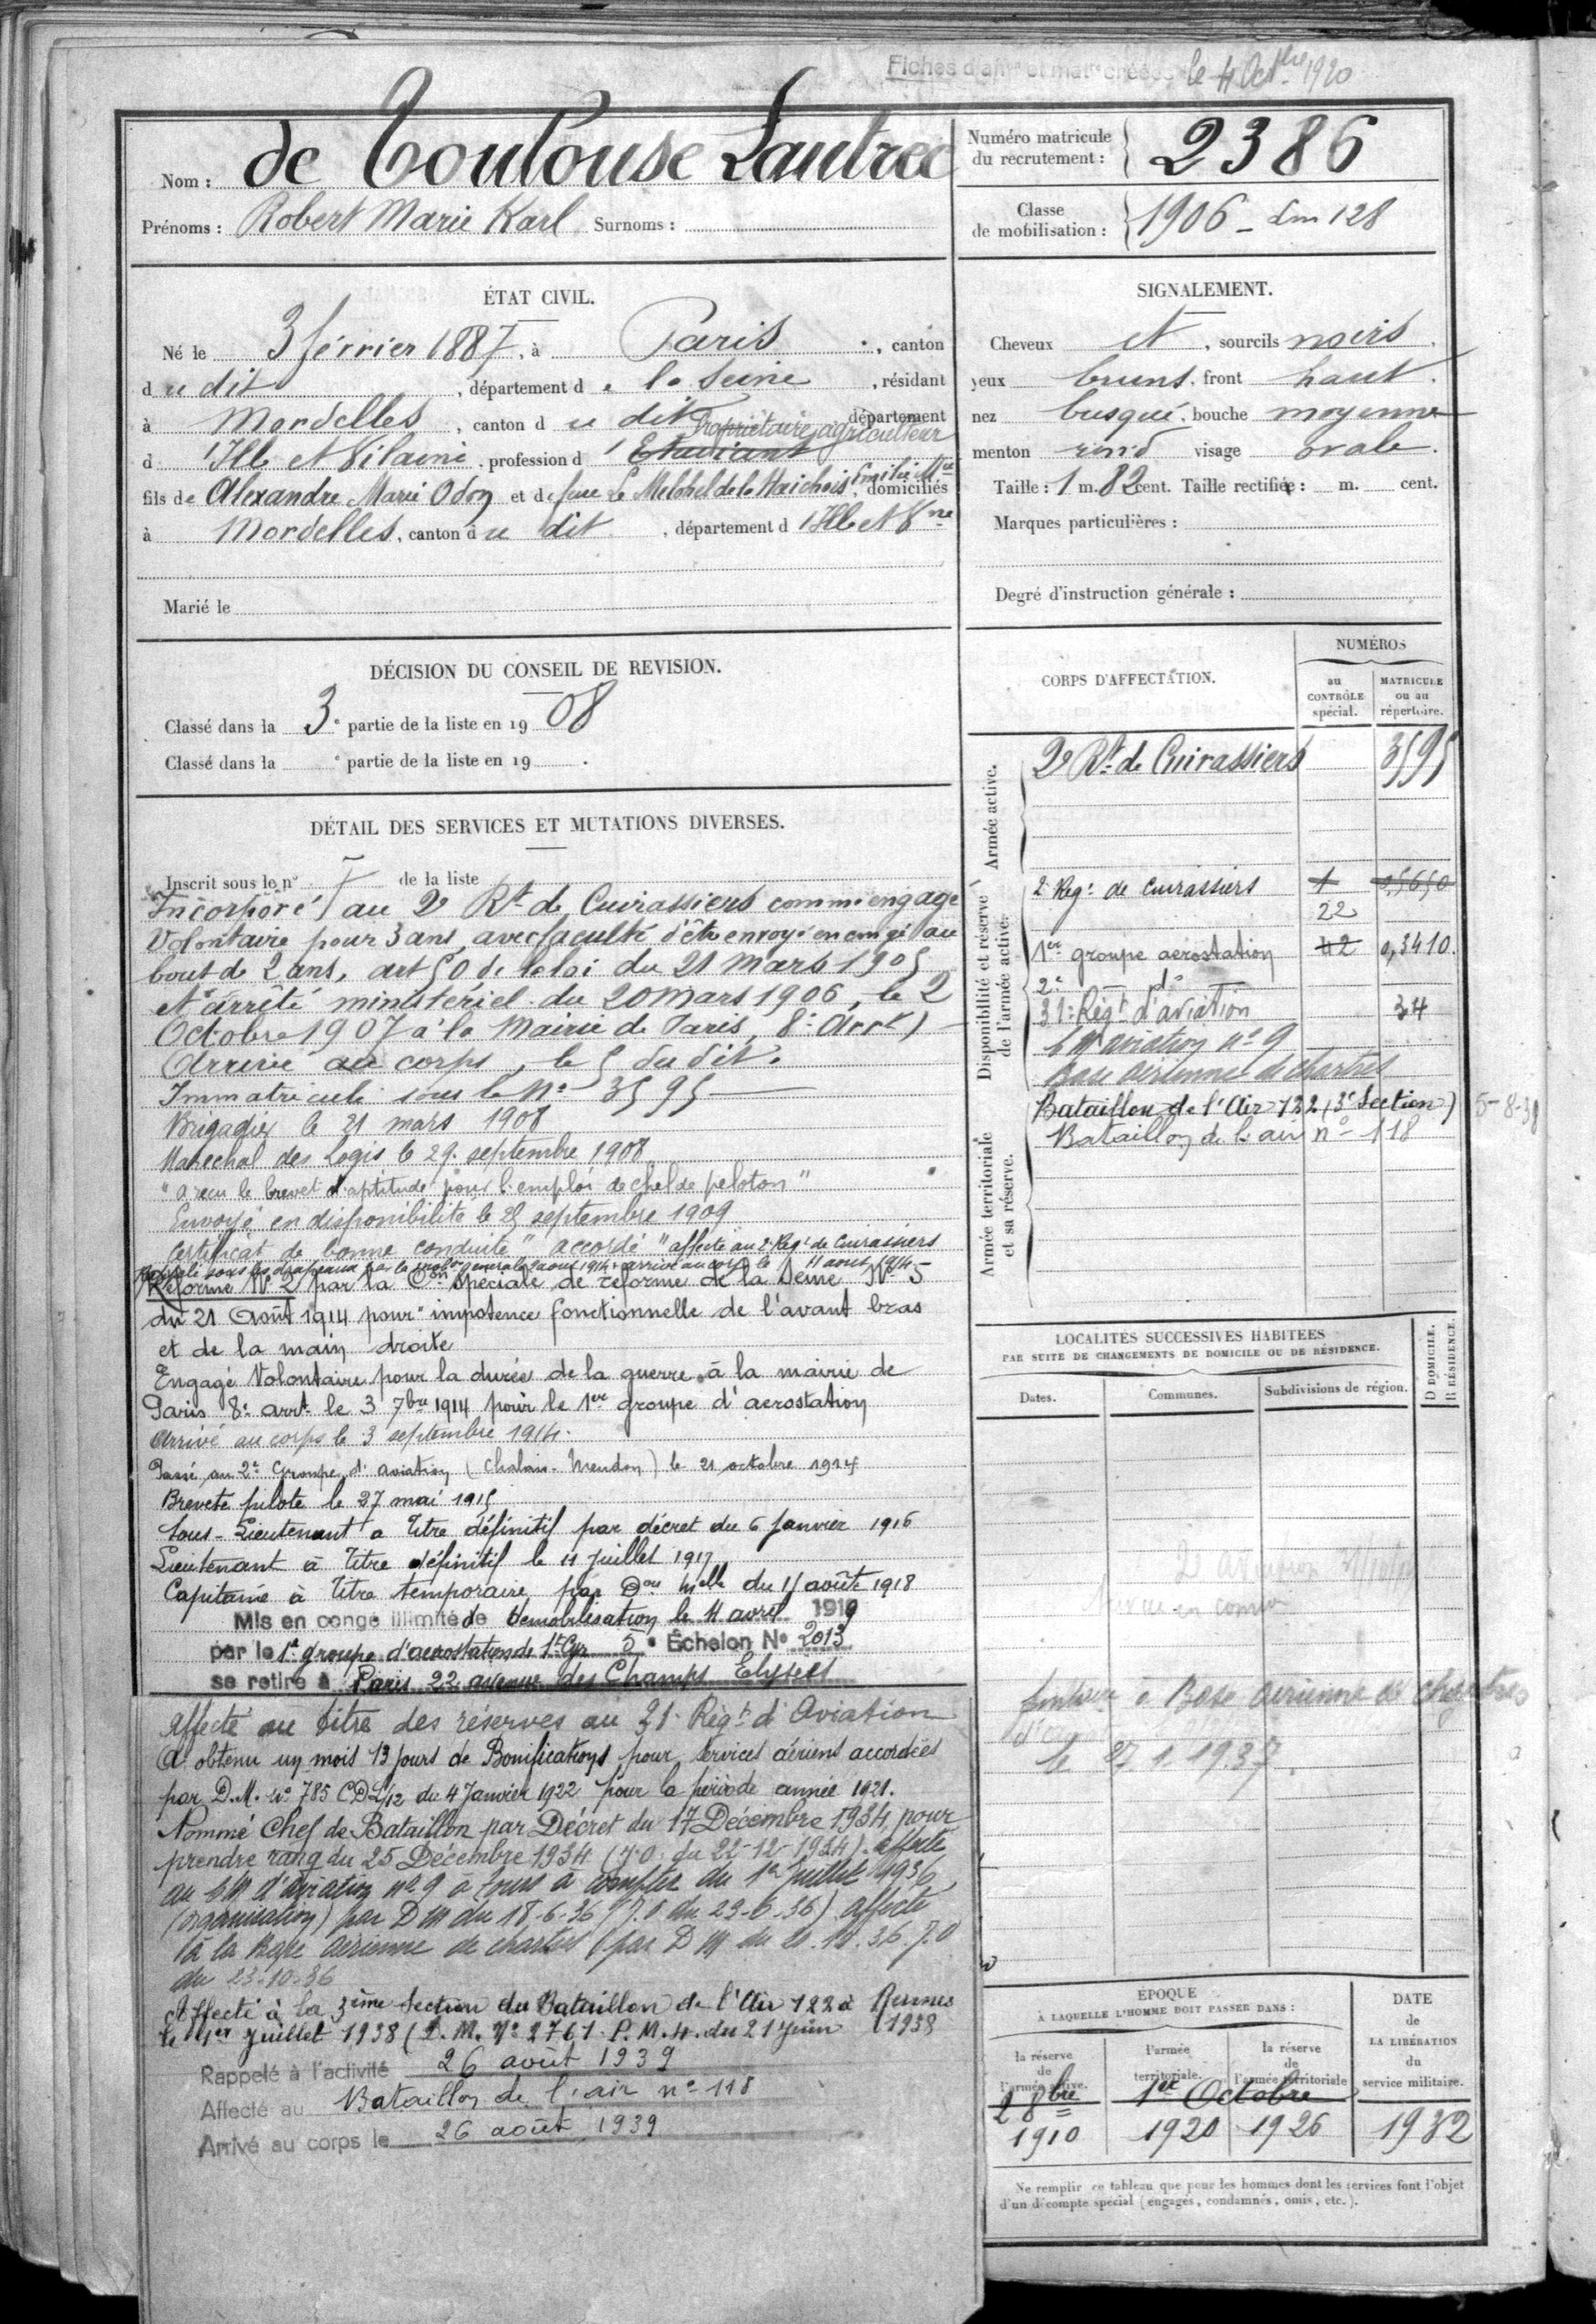 Fiches d'affon et matle créées le 4 Octbre 1920
Nom : de Toulouse Lautrec
Prénoms : Robert Marie Karl Surnoms :
Numéro matricule du recrutement : 2386
Classe de mobilisation : 1906
ÉTAT CIVIL.
Né le 3 février 1887, à Paris, canton
du dit, département de la Seine, résidant
à Mordelles, canton du dit département
Propriétaire agriculteur
d'Ille et Vilaine, profession d'Etudiant
fils de Alexandre Marie Odon et de feue Le Melorel de la Haichois Emilie Mie domiciliés
à Mordelles, canton du dit, département d'Ille et Vne
Marié le
SIGNALEMENT.
Cheveux et, sourcils noirs,
yeux bruns, front haut,
nez busqué, bouche moyenne
menton rond visage ovale.
Taille : 1 m. 82 cent. Taille rectifiée : m. cent.
Marques particulières :
Degré d'instruction générale :
DÉCISION DU CONSEIL DE REVISION.
Classé dans la 3e partie de la liste en 1908
Classé dans la e partie de la liste en 19 .
DÉTAIL DES SERVICES ET MUTATIONS DIVERSES.
Inscrit sous le n° de la liste
Incorporé au 2e Rt de Cuirassiers comme engagé
Volontaire pour 3 ans, avec faculté d'être envoyé en congé au
bout de 2 ans, art 50 de la loi du 21 Mars 1905
et arrêté ministériel du 20 Mars 1906, le 2
Octobre 1907 à la Mairie de Paris, 8e Arrt)
Arrivé au corps, le 5 du dit.
Immatriculé sous le No 3595
Brigadier le 21 mars 1908
Maréchal des Logis le 29 septembre 1908
"a reçu le brevet d'aptitude pour l'emploi de chef de peloton"
Envoyé en disponibilité le 25 septembre 1909
Certificat de bonne conduite "accordé" affecté au 2e Regt de Cuirassiers
Rappelé sous les drapeaux par la mobon générale 2 août 1914 arrivé au corps le 11 août 1914
Réformé No 2 par la Con Spéciale de réforme de la Seine No 5
du 21 Août 1914 pour "impotence fonctionnelle de l'avant bras
et de la main droite
Engagé Volontaire pour la durée de la guerre à la mairie de
Paris 8e arrt le 3 7bre 1914 pour le 1er groupe d'aerostation
Arrivé au corps le 3 septembre 1914.
Passé au 2e Groupe d'aviation (Chalais-Meudon) le 21 octobre 1914
Breveté pilote le 27 mai 1915
Sous-Lieutenant à titre définitif par décret du 6 Janvier 1916
Lieutenant à titre définitif le 11 Juillet 1917
Capitaine à titre temporaire par Don Mielle du 15 août 1918
Mis en congé illimité de démobilisation le 4 avril 1919
par le 1er groupe d'aerostation de St Cyr 5e Échelon No 2013
se retire à Paris 22 avenue des Champs Elysées
Affecté au titre des réserves au 31e Régt d'Aviation
A obtenu un mois 13 jours de Bonifications pour services aériens accordées
par D.M. No 785 CDL/12 du 4 Janvier 1922 pour la période année 1921.
Nommé Chef de Bataillon par Décret du 17 Décembre 1934, pour
prendre rang du 25 Décembre 1934 (J.O. du 22-12-1934). affecté
au b.M d'aviation no 9 à Tours à compter du 1er Juillet 1936
(organisation) par D M du 18-6-36 (J.O du 23-6-36) affecté
à la Base Aérienne de Chartres (par D M du 20.10.36. J.O
du 23-10-36
Affecté à la 3ème Section du Bataillon de l'Air 122 à Rennes
le 1er Juillet 1938 (D.M. No 2761. P.M.4. du 21 Juin 1938
Rappelé à l'activité 26 août 1939
Affecté au Bataillon de l'air no 118
Arrivé au corps le 26 août 1939
CORPS D'AFFECTATION.
NUMÉROS
au CONTRÔLE spécial.
MATRICULE ou au répertoire.
Armée active.
2e Rt de Cuirassiers 3595
Disponibilité et réserve de l'armée active.
2e Regt de Cuirassiers 1 05650
22
1er groupe aerostation 42 0,3410.
2e do
31e Régt d'aviation 34
b M aviation no 9
Base aérienne de Chartres
Bataillon de l'Air 122 (3e Section) 5-8-38
Bataillon de l'air no 118
Armée territoriale et sa réserve.
LOCALITÉS SUCCESSIVES HABITÉES
PAR SUITE DE CHANGEMENTS DE DOMICILE OU DE RÉSIDENCE.
Dates. Communes. Subdivisions de région. D DOMICILE. R RÉSIDENCE.
Base aérienne de Chartres
le 27.1.1937.
ÉPOQUE
À LAQUELLE L'HOMME DOIT PASSER DANS :
DATE de LA LIBÉRATION du service militaire.
la réserve de l'armée active.
l'armée territoriale.
la réserve de l'armée territoriale
2 8bre 1er Octobre
1910 1920 1926 1932
Ne remplir ce tableau que pour les hommes dont les services font l'objet
d'un décompte spécial (engagés, condamnés, omis, etc.).